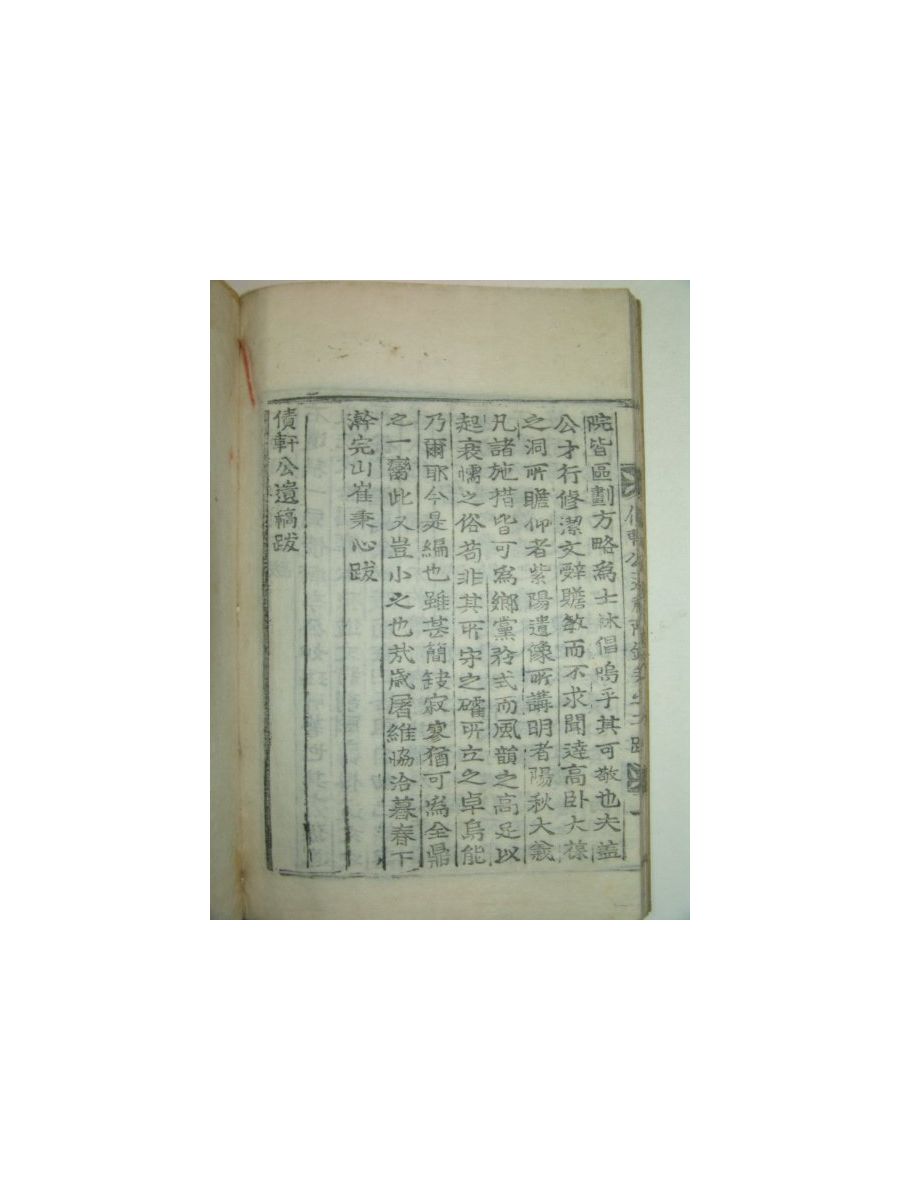 院皆區劃方略爲士林倡嗚乎其可敬也夫蓋
公才行修潔文辭贍敏而不求聞達高臥大葆
之洞所瞻仰者紫陽遺像所講明者陽秋大義
凡諸施措皆可爲鄉黨矜式而風韻之高足以
起衰懦之俗苟非其所守之確所立之卓烏能
乃爾耶今是編也雖甚簡缺寂寥猶可爲全鼎
之一臠此又豈小之也哉歲屠維協洽暮春下
澣完山崔秉心跋
債軒公遺稿跋